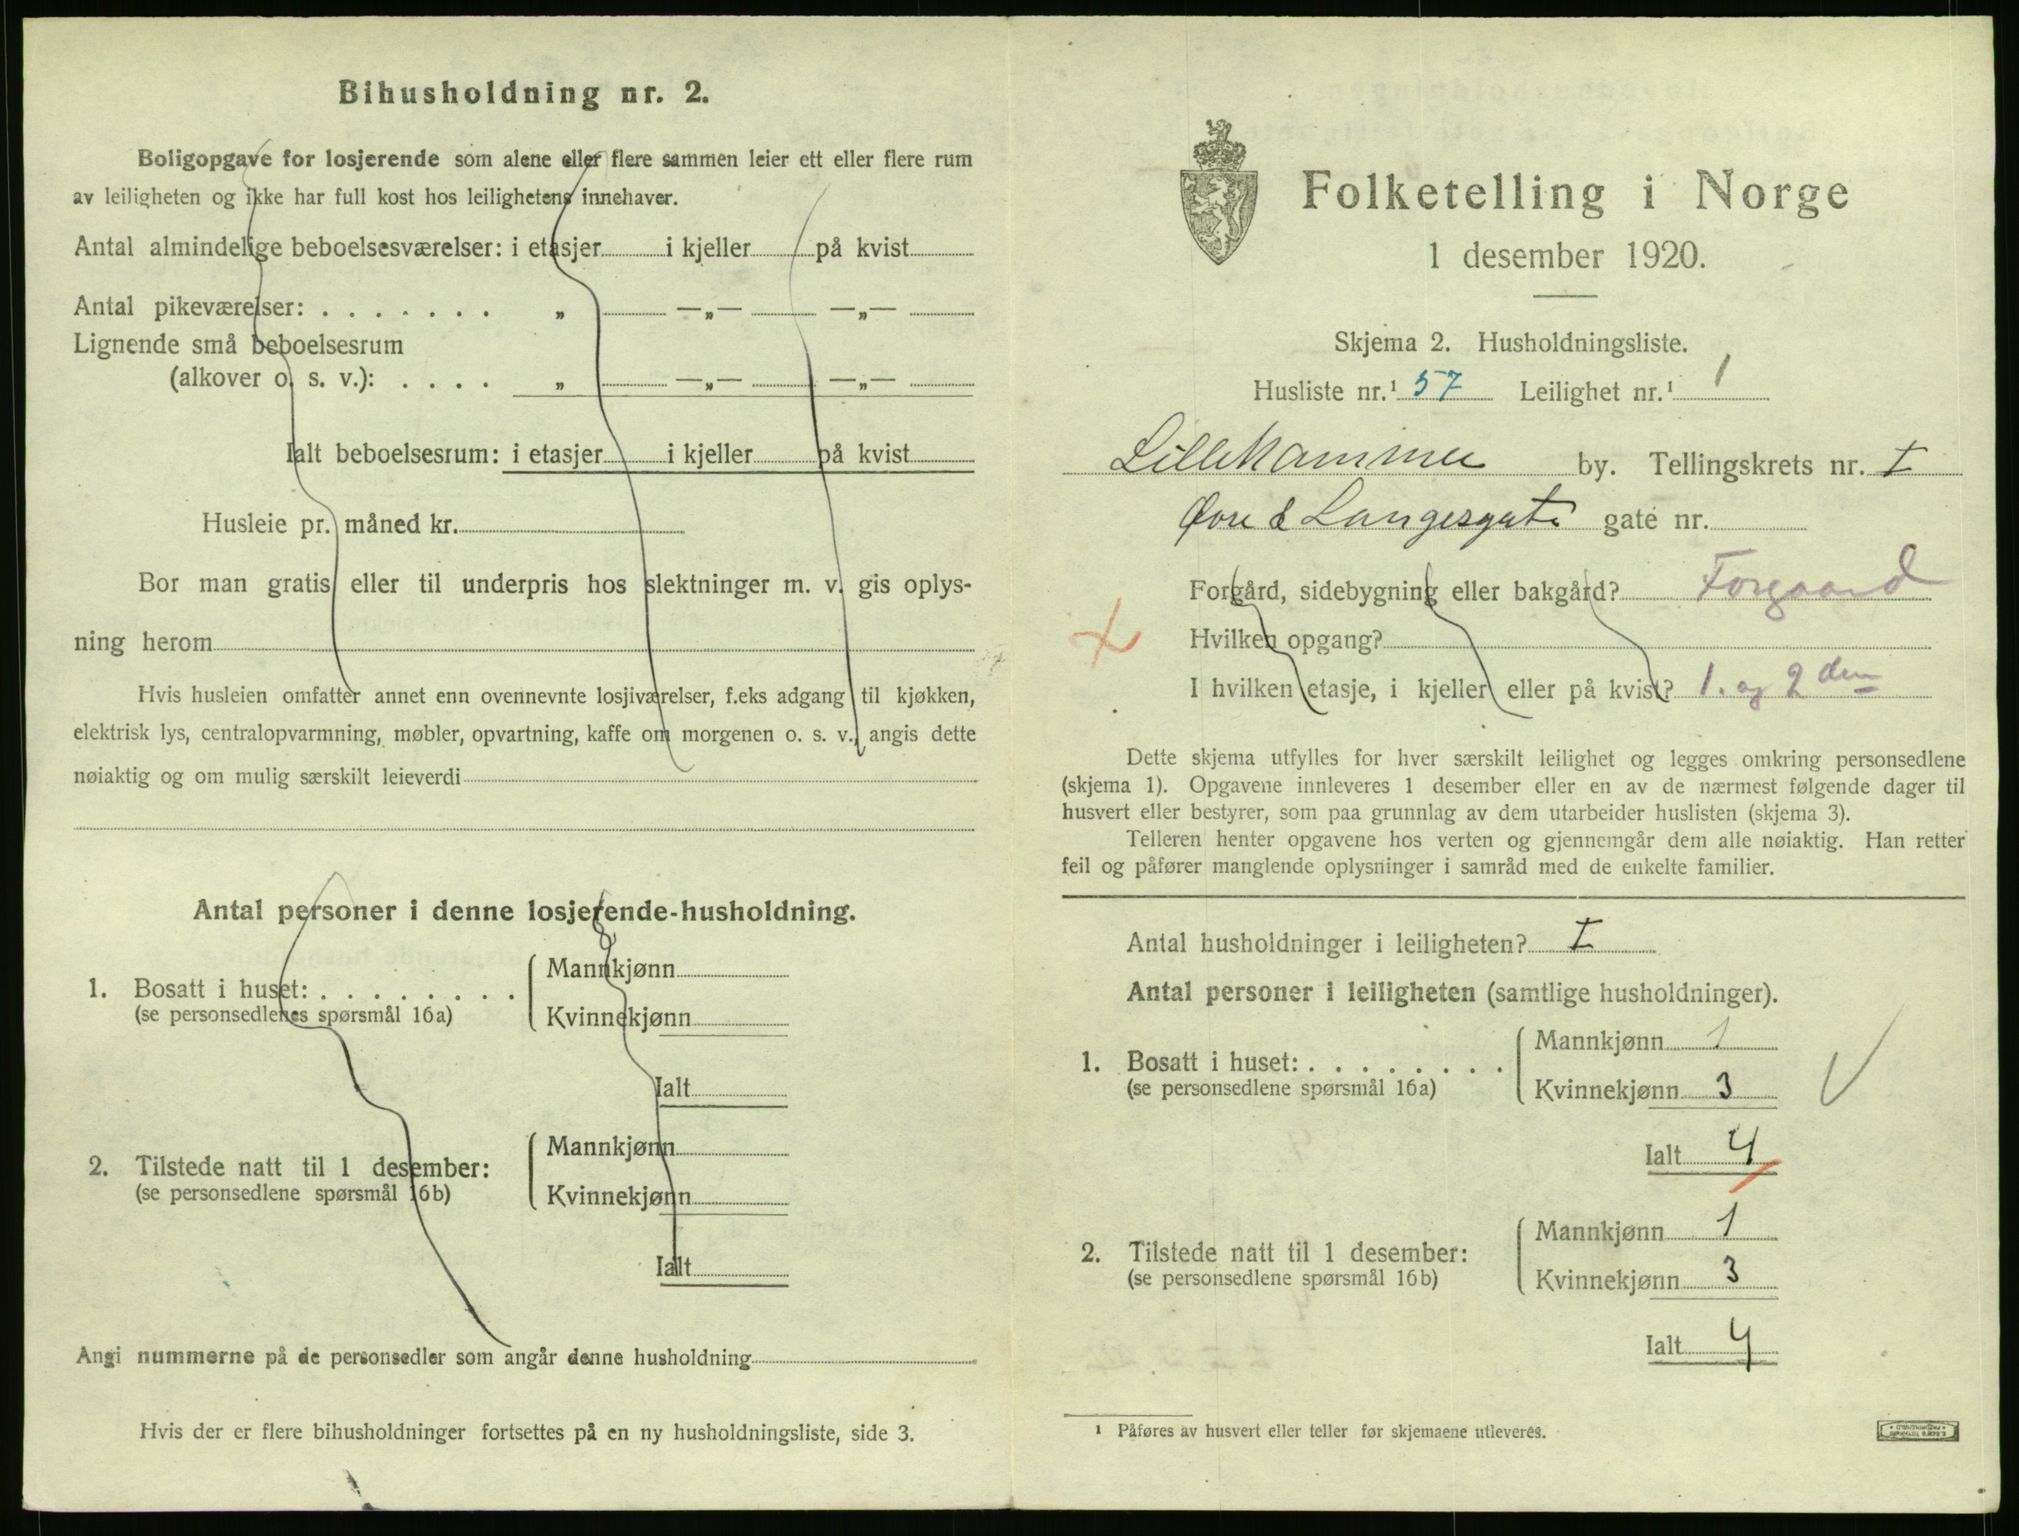 Bihusholdning nr. 2.
Boligopgave for losjerende som alene eller flere sammen leier ett eller flere rum
av leiligheten og ikke har full kost hos leilighetens innehaver.
Antal almindelige beboelsesværelser: i etasjer i kjeller på kvist
Antal pikeværelser: . . . . . . . „ —„— —„—
Lignende små beboelsesrum
(alkover o. s. v.): . . . . „ —„— —„—
Ialt beboelsesrum: i etasjer i kjeller på kvist
Husleie pr. måned kr.
Bor man gratis eller til underpris hos slektninger m. v. gis oplys-
ning herom
Hvis husleien omfatter annet enn ovennevnte losjiværelser, f.eks adgang til kjøkken,
elektrisk lys, centralopvarmning, møbler, opvartning, kaffe om morgenen o. s. v., angis dette
nøiaktig og om mulig særskilt leieverdi
Antal personer i denne losjerende-husholdning.
1. Bosatt i huset: . . . . . . . . Mannkjønn
(se personsedlenes spørsmål 16a) Kvinnekjønn
Ialt
2. Tilstede natt til 1 desember: Mannkjønn
(se personsedlene spørsmål 16b) Kvinnekjønn
Ialt
Angi nummerne på de personsedler som angår denne husholdning
Hvis der er flere bihusholdninger fortsettes på en ny husholdningsliste, side 3.
Folketelling i Norge
1 desember 1920.
Skjema 2. Husholdningsliste.
Husliste nr.¹ 57 Leilighet nr.¹ 1
Lillehammer by. Tellingskrets nr. I
Langesgate gate nr.
Forgård, sidebygning eller bakgård? Forgaard
Hvilken opgang?
I hvilken etasje, i kjeller eller på kvist? 1. og 2 den
Dette skjema utfylles for hver særskilt leilighet og legges omkring personsedlene
(skjema 1). Opgavene innleveres 1 desember eller en av de nærmest følgende dager til
husvert eller bestyrer, som paa grunnlag av dem utarbeider huslisten (skjema 3).
Telleren henter opgavene hos verten og gjennemgår dem alle nøiaktig. Han retter
feil og påfører manglende oplysninger i samråd med de enkelte familier.
Antal husholdninger i leiligheten? I
Antal personer i leiligheten (samtlige husholdninger).
1. Bosatt i huset: . . . . . . . . Mannkjønn 1
(se personsedlene spørsmål 16a) Kvinnekjønn 3
Ialt 4
2. Tilstede natt til 1 desember: Mannkjønn 1
(se personsedlene spørsmål 16b) Kvinnekjønn 3
Ialt 4
¹ Påføres av husvert eller teller før skjemaene utleveres.